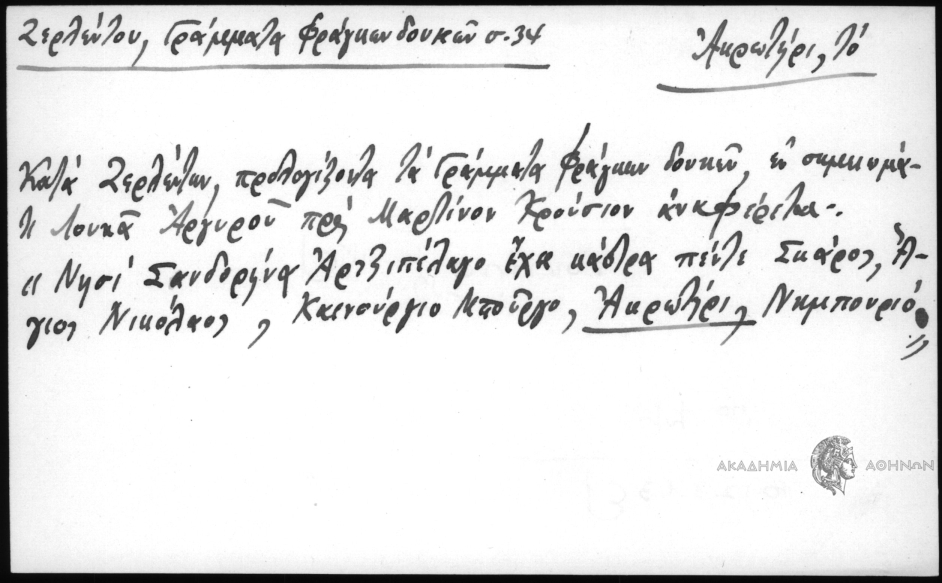 Ζερλέντου, Γράμματα Φράγκων δουκῶν σ.34
Ἀκρωτήρι, τό
Κατά Ζερλέντην, προλογίζοντα τά Γράμματα Φράγκων δουκῶν, ἐν σημειώμα-
τι Λουκᾶ Ἀργυροῦ πρός Μαρτῖνον Κρούσιον ἀναφέρεται.
"Νησί Σανδορήνα Ἀρτζιπέλαγο ἔχει κάστρα πέντε Σκάρος, Ἅ-
γιος Νικόλαος, Καινούργιο Μποῦργο, Ἀκρωτήρι, Νημπουριό"
ΑΚΑΔΗΜΙΑ ΑΘΗΝΩΝ